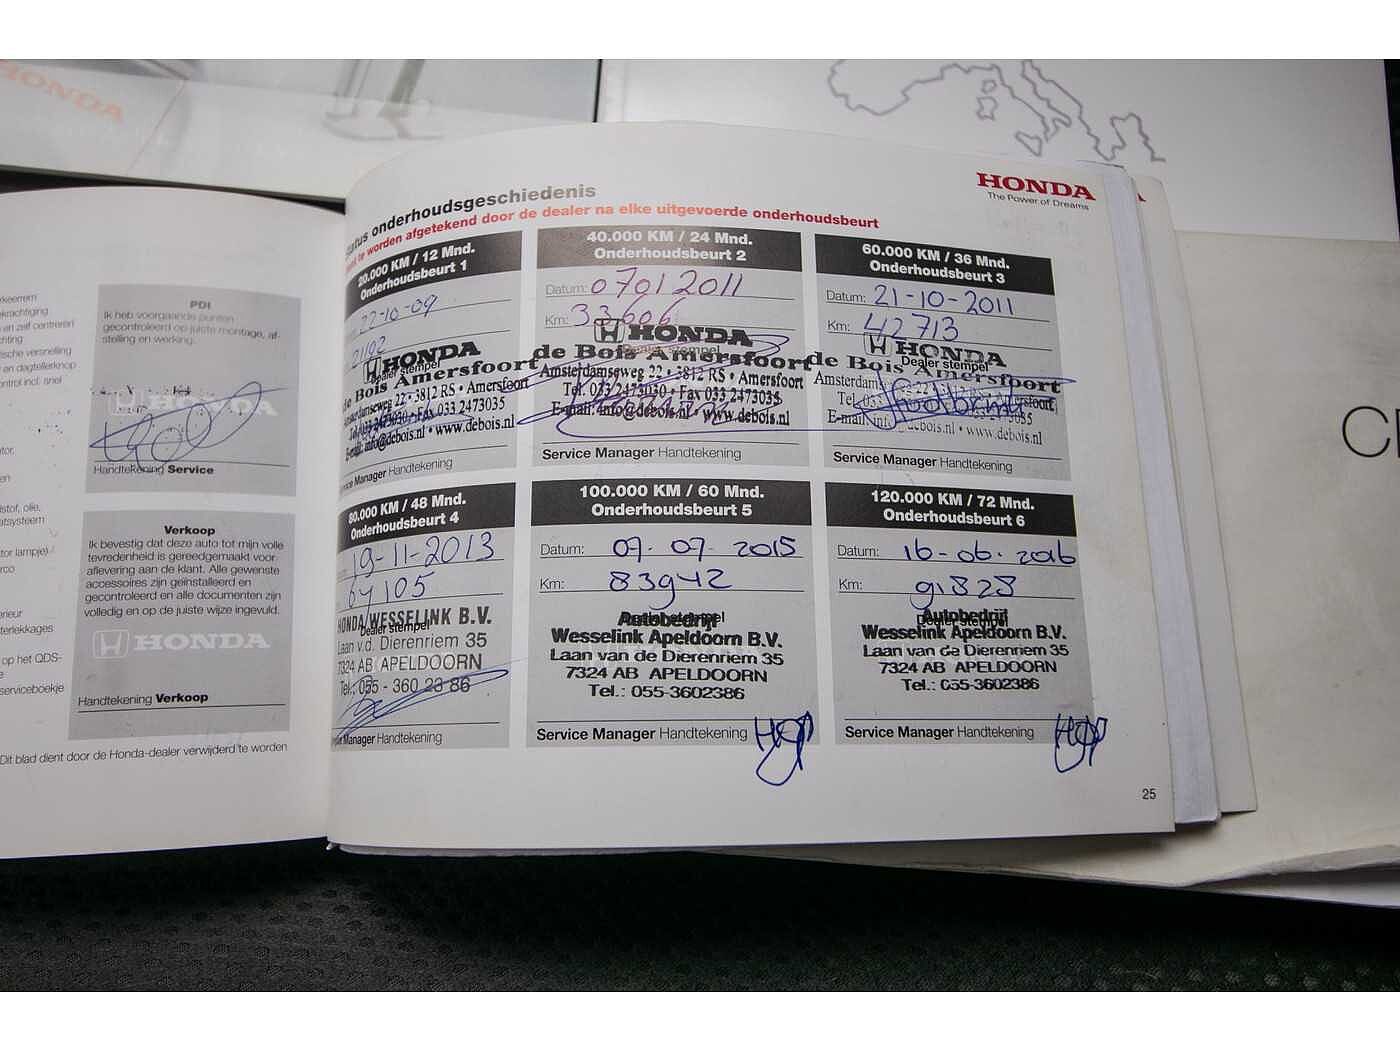 HONDA
PDI
Ik heb voorgaande punten
gecontroleerd op juiste montage, af-
stelling en werking.
HONDA
Handtekening Service
Verkoop
Ik bevestig dat deze auto tot mijn volle
tevredenheid is gereedgemaakt voor
aflevering aan de klant. Alle gewenste
accessoires zijn geïnstalleerd en
gecontroleerd en alle documenten zijn
volledig en op de juiste wijze ingevuld.
HONDA
Handtekening Verkoop
Dit blad dient door de Honda-dealer verwijderd te worden
en zelf centreren
ische versnelling
en dagtellerknop
ontrol incl. snel
stof, olie,
atsysteem
tor lampje)
op het QDS-
serviceboekje
HONDA
The Power of Dreams
onderhoudsgeschiedenis
te worden afgetekend door de dealer na elke uitgevoerde onderhoudsbeurt
20.000 KM / 12 Mnd.
Onderhoudsbeurt 1
22-10-09
21192
HONDA
Dealer stempel
de Bois Amersfoort
Amsterdamseweg 22 • 3812 RS • Amersfoort
Tel. 033 2473030 • Fax 033 2473035
E-mail: info@debois.nl • www.debois.nl
Service Manager Handtekening
40.000 KM / 24 Mnd.
Onderhoudsbeurt 2
Datum: 07012011
Km: 33606
HONDA
Dealer stempel
de Bois Amersfoort
Amsterdamseweg 22 • 3812 RS • Amersfoort
Tel. 033 2473030 • Fax 033 2473035
E-mail: info@debois.nl • www.debois.nl
Service Manager Handtekening
60.000 KM / 36 Mnd.
Onderhoudsbeurt 3
Datum: 21-10-2011
Km: 42713
HONDA
Dealer stempel
de Bois Amersfoort
E-mail: info@debois.nl • www.debois.nl
Service Manager Handtekening
80.000 KM / 48 Mnd.
Onderhoudsbeurt 4
19-11-2013
64105
HONDA/WESSELINK B.V.
Dealer stempel
Laan v.d. Dierenriem 35
7324 AB APELDOORN
Tel.: 055 - 360 23 86
Manager Handtekening
100.000 KM / 60 Mnd.
Onderhoudsbeurt 5
Datum: 07-07-2015
Km: 83942
Dealer stempel
Autobedrijf
Wesselink Apeldoorn B.V.
Laan van de Dierenriem 35
7324 AB APELDOORN
Tel.: 055-3602386
Service Manager Handtekening
120.000 KM / 72 Mnd.
Onderhoudsbeurt 6
Datum: 16-06-2016
Km: 91828
Dealer stempel
Autobedrijf
Wesselink Apeldoorn B.V.
Laan van de Dierenriem 35
7324 AB APELDOORN
Tel.: 055-3602386
Service Manager Handtekening
25